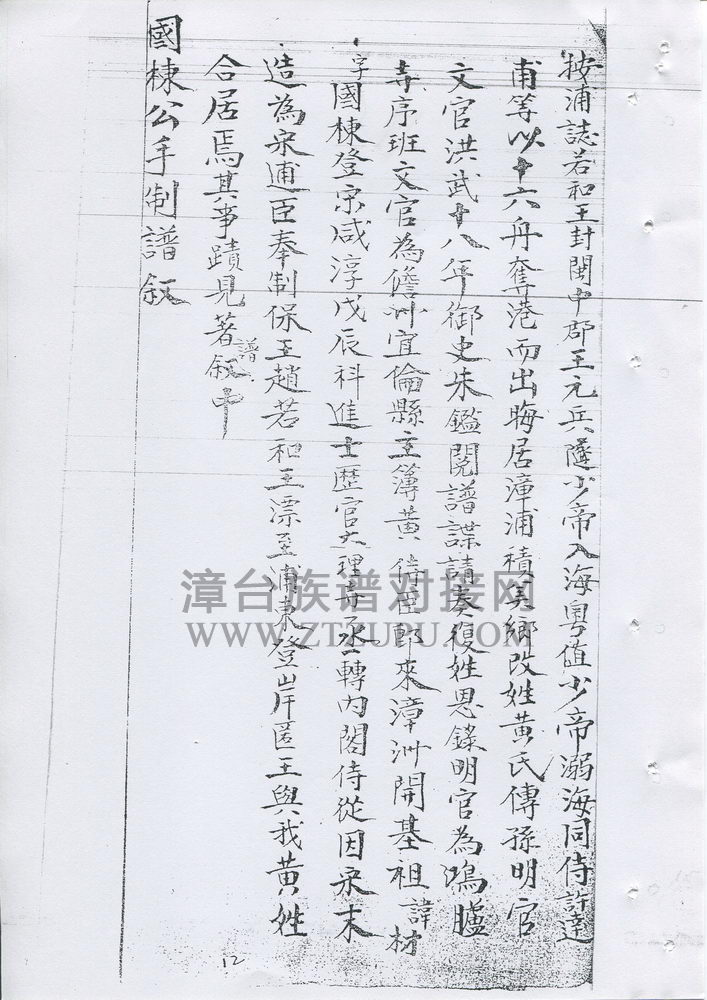 按浦誌若和王封閩中郡王元兵隨少帝入海粵值少帝溺海同侍許達
甫等以十六舟奪港而出晦居漳浦積美鄉改姓黃氏傳孫明官
文官洪武十八年御史朱鑑閱譜諜請奏復姓恩錄明官為鴻臚
寺序班文官為儋州宜倫縣主簿黃侍臣郎來漳州開基祖諱材
字國棟登宋咸淳戊辰科進士歷官大理寺丞轉內閣侍從因宋末
造為宋逋臣奉制保王趙若和王漂至浦東登岸匿王與我黃姓
合居焉其事蹟見著譜叙中
國棟公手制譜叙
12
漳台族谱对接网
WWW.ZTZUPU.COM